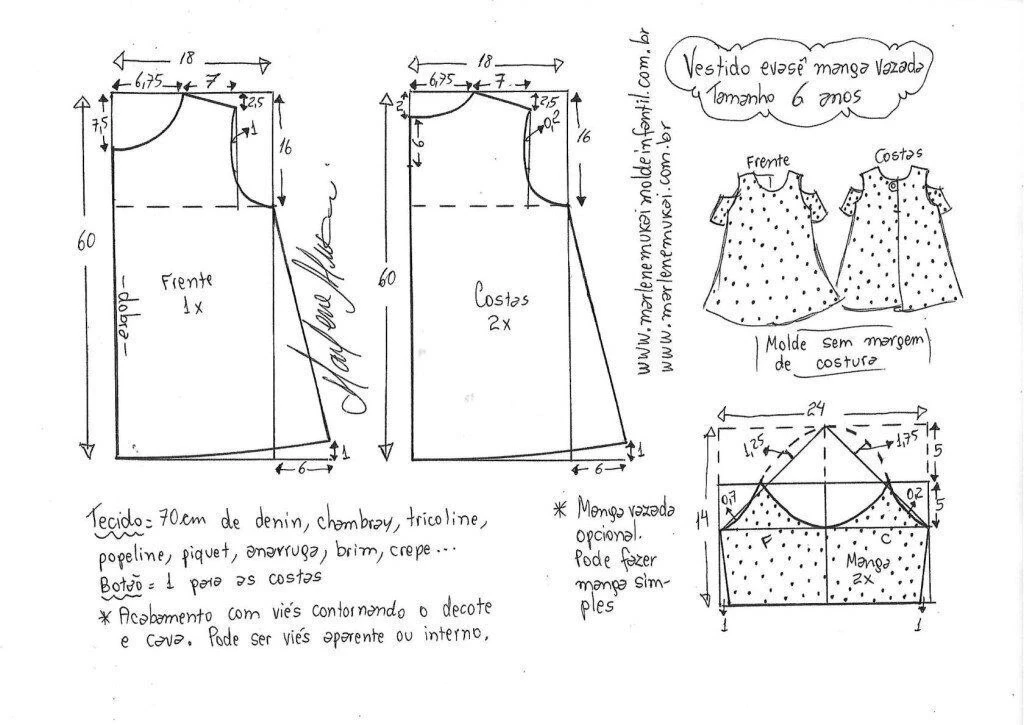 Vestido evasê manga vazada
Tamanho 6 anos
www.marlenemukaimoldeinfantil.com.br
www.marlenemukai.com.br
18
6,75
7
2,5
7,5
1
16
60
Frente
1x
-dobra-
6
1
18
6,75
7
2
2,5
0,2
6
16
60
Costas
2x
6
1
Frente
Costas
Molde sem margem
de costura
24
1,25
1,75
5
0,7
0,2
5
14
F
C
Manga
2x
1
1
Tecido = 70cm de denin, chambray, tricoline,
popeline, piquet, anarruga, brim, crepe...
Botão = 1 para as costas
* Acabamento com viés contornando o decote
e cava. Pode ser viés aparente ou interno.
* Manga vazada
opcional.
Pode fazer
manga sim-
ples